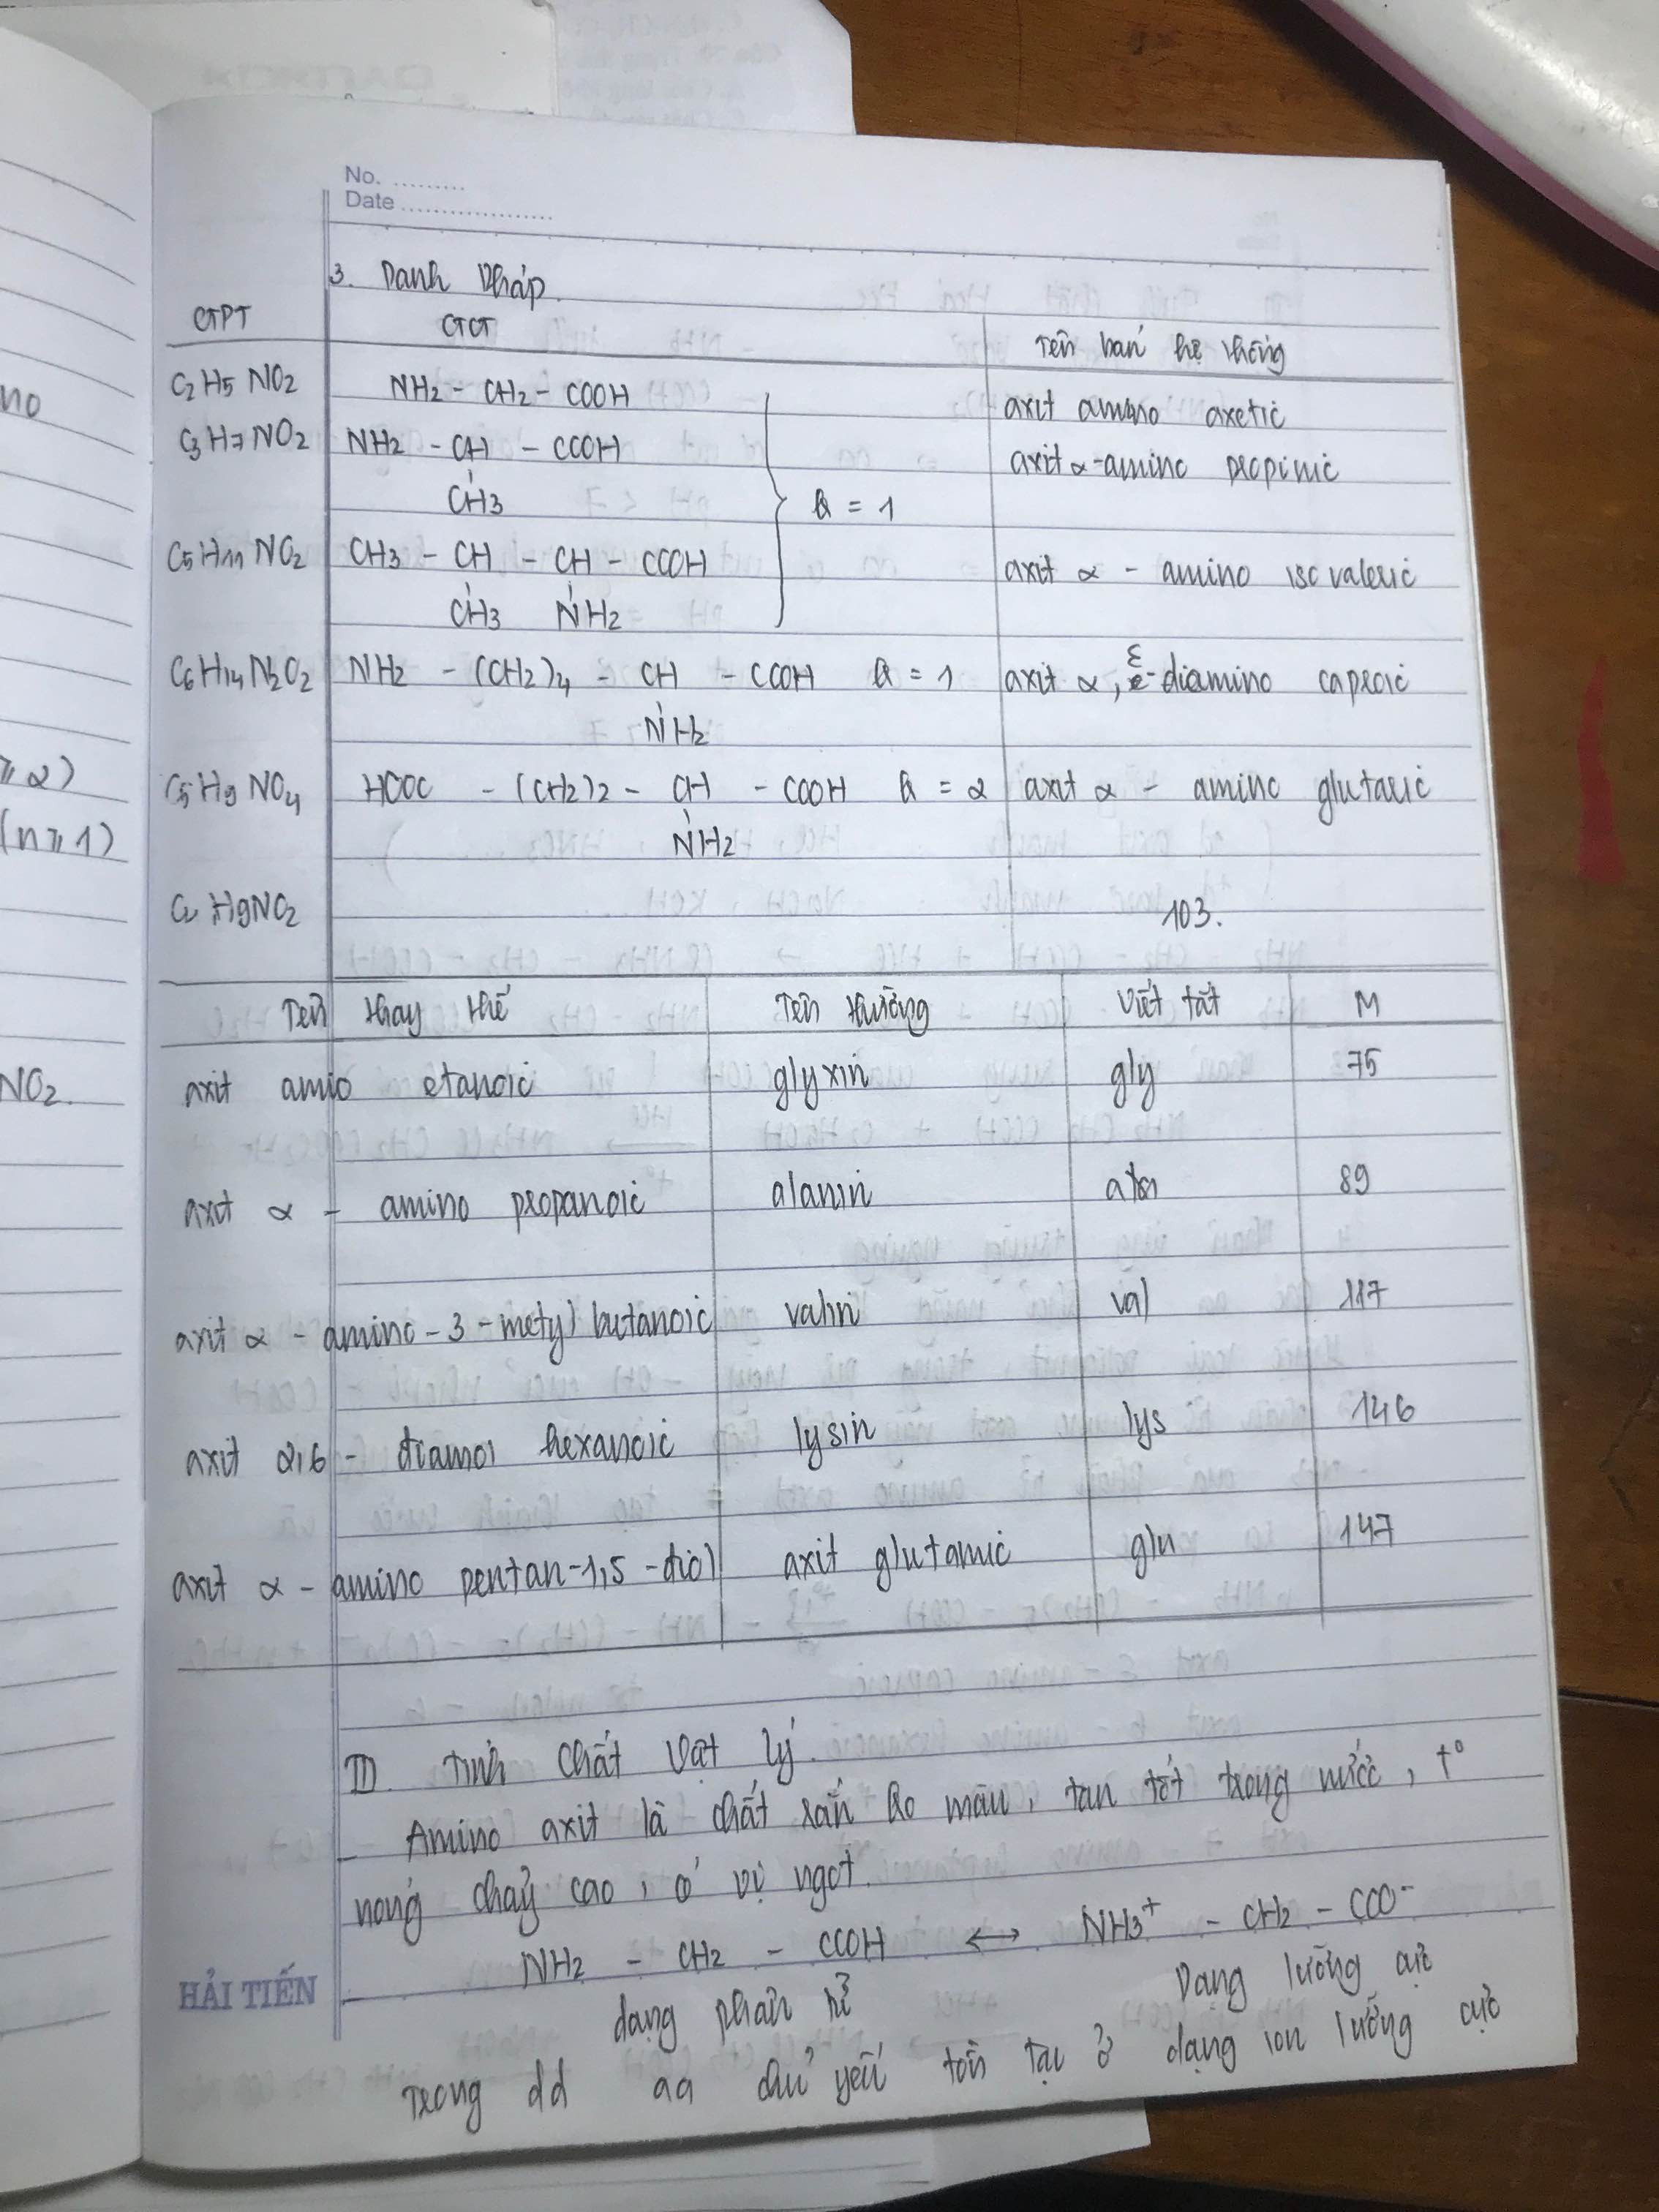 No. .........
Date ....................
3. Danh Pháp.
CTPT CTCT Tên bán hệ thống
C2H5NO2 NH2 - CH2 - COOH axit amino axetic
C3H7NO2 NH2 - CH - COOH axit α-amino propinic
CH3 } a = 1
C5H11NO2 CH3 - CH - CH - COOH axit α - amino isovaleric
CH3 NH2
C6H14N2O2 NH2 - (CH2)4 - CH - COOH a = 1 axit α, ε-diamino caproic
NH2
C5H9NO4 HOOC - (CH2)2 - CH - COOH a = 2 axit α - amino glutaric
NH2
H9NO2 103.
Tên thay thế Tên thường Viết tắt M
axit amio etanoic glyxin gly 75
axit α - amino propanoic alanin ala 89
axit α - amino - 3 - metyl butanoic valin val 117
axit 2,6 - điamoi hexanoic lysin lys 146
axit α - amino pentan-1,5-điol axit glutamic glu 147
II. Tính chất vật lý.
- Amino axit là chất rắn ko màu, tan tốt trong nước, t°
nóng chảy cao, có vị ngọt.
NH2 - CH2 - COOH ↔ NH3+ - CH2 - COO-
dạng phân tử Dạng lưỡng cực
Trong dd aa chủ yếu tồn tại ở dạng ion lưỡng cực
HẢI TIẾN
no
≥ 2)
(n ≥ 1)
NO2.